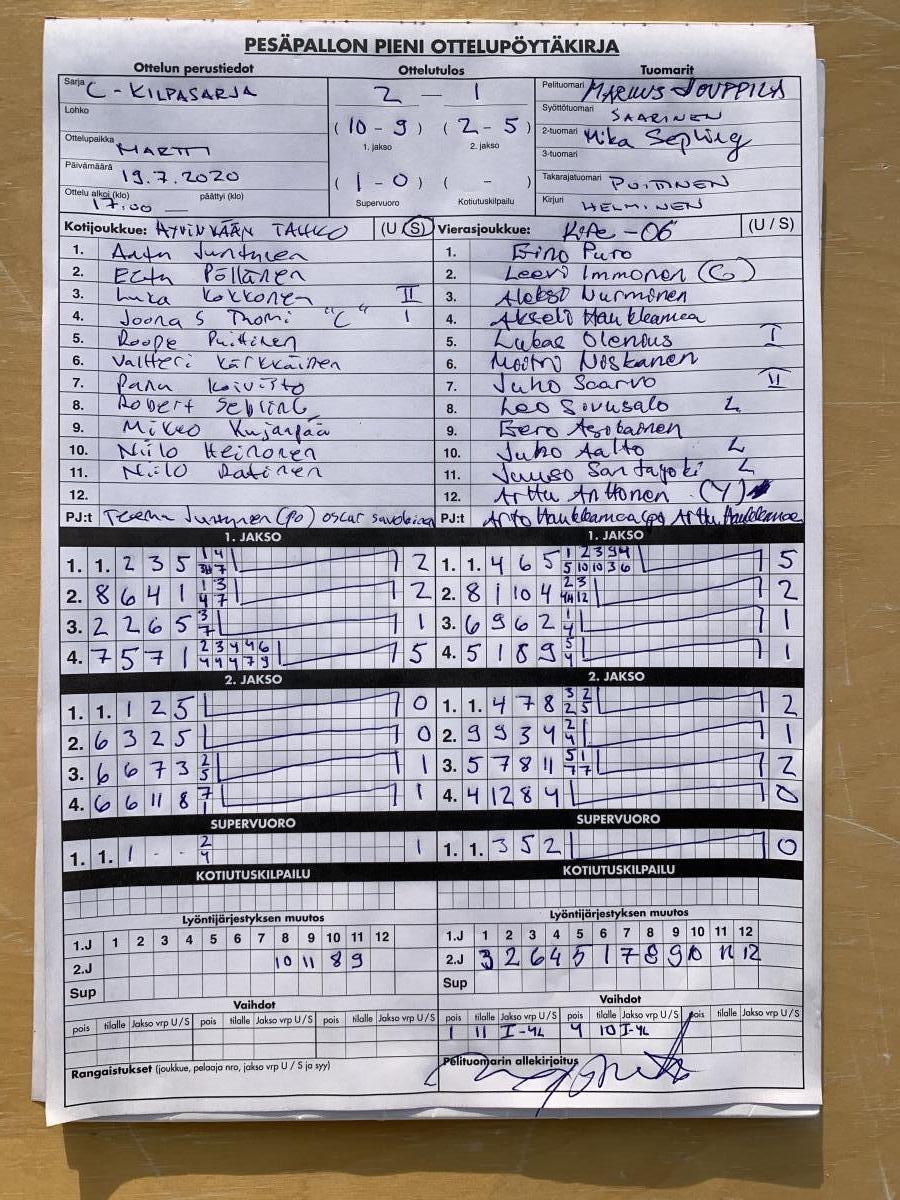 PESÄPALLON PIENI OTTELUPÖYTÄKIRJA
Ottelun perustiedot
Sarja C - KILPASARJA
Lohko
Ottelupaikka MARTTI
Päivämäärä 19.7.2020
Ottelu alkoi (klo) 17:00 päättyi (klo)
Ottelutulos
2 — 1
(10 - 9) (2 - 5)
1. jakso 2. jakso
(1 - 0) ( - )
Supervuoro Kotiutuskilpailu
Tuomarit
Pelituomari MARKUS JOUPPILA
Syöttötuomari SAARINEN
2-tuomari Mika Sepling
3-tuomari
Takarajatuomari POITINEN
Kirjuri HELMINEN
Kotijoukkue: HYVINKÄÄN TAHKO (U S)
1. Antu Juntunen
2. Eetu Pöllänen
3. Luka Kokkonen II
4. Joona S Thomi "C" I
5. Roope Puitinen
6. Valtteri Kärkkäinen
7. Panu Koivisto
8. Robert Sebling
9. Mikko Kujanpää
10. Niilo Heinonen
11. Niilo Ratinen
12.
PJ:t Teemu Juntunen (po) oscar
Vierasjoukkue: KiPe -06 (U / S)
1. Eino Puro
2. Leevi Immonen (C)
3. Aleksi Nurminen
4. Akseli Haukkamaa
5. Lukas Olenius I
6. Mootri Noskanen
7. Juho Saarvo II
8. Leo Sivusalo L
9. Eero Asikainen
10. Juho Aalto L
11. Juuso Santajoki L
12. Arttu Anttonen (Y)
PJ:t Arto Haukkamaa (pj) Arttu Haukkamaa
1. JAKSO
1. 1. 2 3 5 2
2. 8 6 4 1 2
3. 2 2 6 5 1
4. 7 5 7 1 5
2. JAKSO
1. 1. 1 2 5 0
2. 6 3 2 5 0
3. 6 6 7 3 1
4. 6 6 11 8 1
SUPERVUORO
1. 1. 1 - - 1
KOTIUTUSKILPAILU
Lyöntijärjestyksen muutos
1.J 1 2 3 4 5 6 7 8 9 10 11 12
2.J 10 11 8 9
Sup
Vaihdot
pois tilalle Jakso vrp U / S pois tilalle Jakso vrp U / S pois tilalle Jakso vrp U / S
Rangaistukset (joukkue, pelaaja nro, jakso vrp U / S ja syy)
1. JAKSO
1. 1. 4 6 5 5
2. 8 1 10 4 2
3. 6 9 6 2 1
4. 5 1 8 9 1
2. JAKSO
1. 1. 4 7 8 2
2. 9 9 3 4 1
3. 5 7 8 11 2
4. 4 12 8 4 0
SUPERVUORO
1. 1. 3 5 2 0
KOTIUTUSKILPAILU
Lyöntijärjestyksen muutos
1.J 1 2 3 4 5 6 7 8 9 10 11 12
2.J 3 2 6 4 5 1 7 8 9 10 11 12
Sup
Vaihdot
pois tilalle Jakso vrp U / S pois tilalle Jakso vrp U / S pois tilalle Jakso vrp U / S
1 11 I-4L 4 10 I-4L
Pelituomarin allekirjoitus